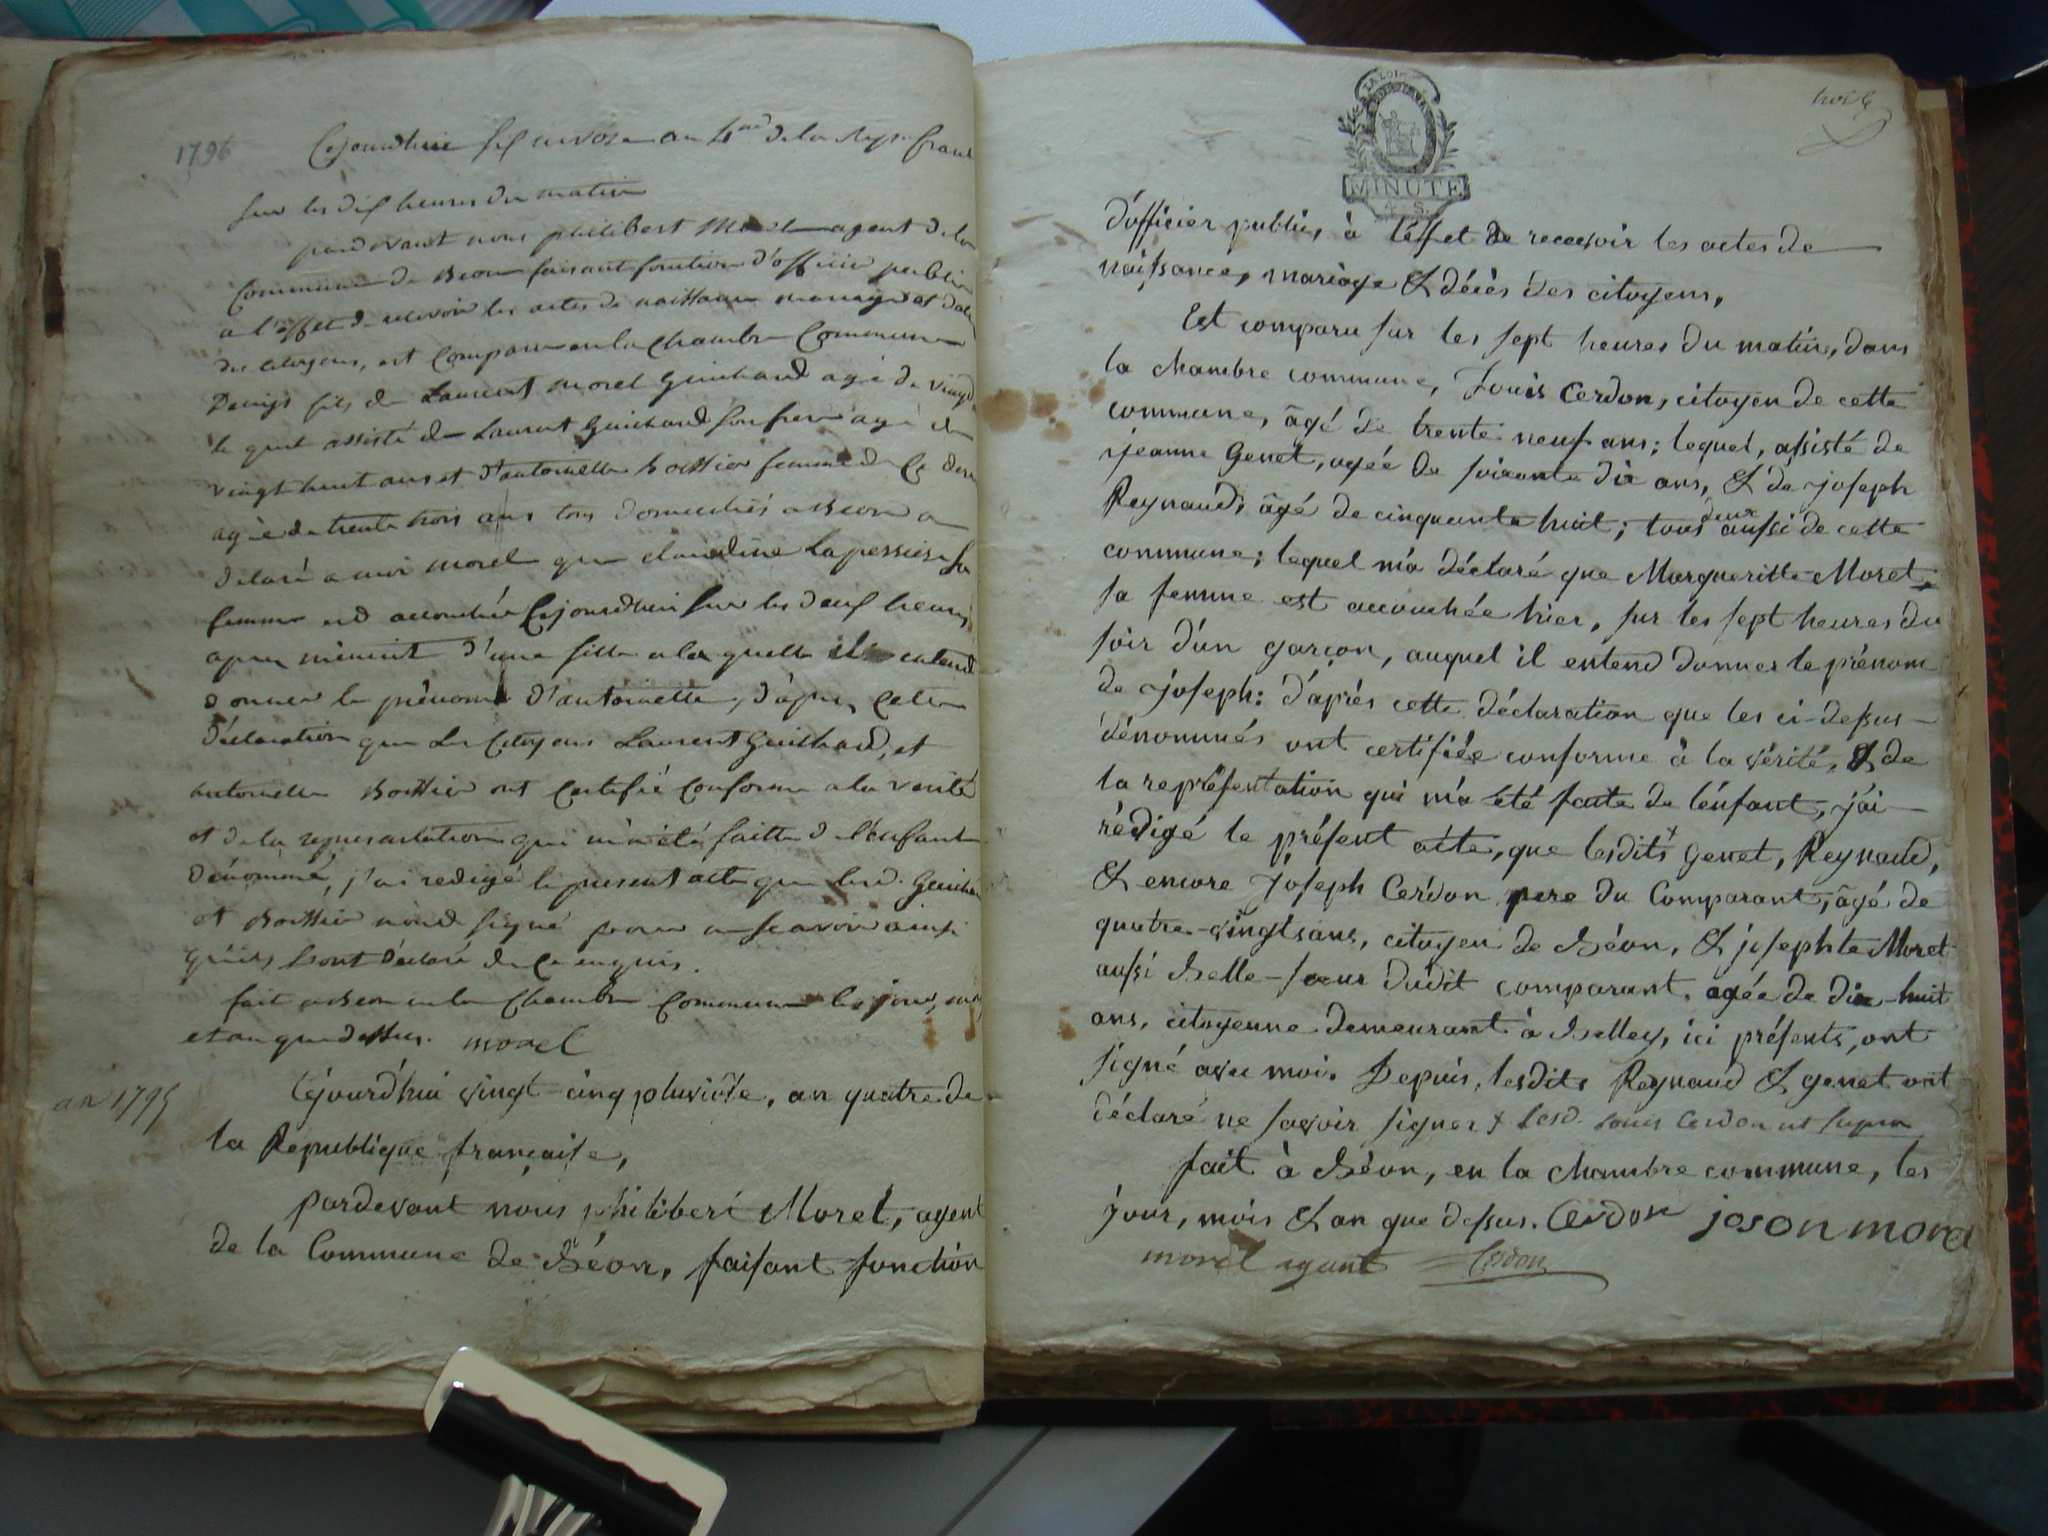 1796
Cejourdhui six nivose an 4me de la Rep. franc
sur les dix heures du matin
pardevant nous philibert Morel agent de la
Commune de Beon faisant fonction d'officier public
a l'effet de recevoir les actes de naissance mariage et
des citoyens, est comparu en la Chambre Commune
Denys fils de Laurent morel Guichard agé de vingt
le quel assisté de Laurent Guichard son frere agé de
vingt huit ans et d'antoinette Bottier femme de
agée de trente trois ans tous domiciliés a Beon a
déclaré a moi morel que claudine Lapessiere sa
femme est accouchée Cejourdhui sur les deux heures
apres minuit d'une fille a la quelle il entend
donner le prénom d'antoinette, d'apres cette
déclaration que Les Citoyens Laurent Guichard, et
antoinette Bottier ont Certifié Conforme a la verité
et de la representation qui m'a été faitte de l'enfant
dénommé, j'ai redigé le present acte que lesd. Guichar
et Bottier n'ont signé pour ne scavoir ainsi
qu'ils l'ont déclaré de ce enquis.
fait a Beon en la Chambre Commune les jour, mois
et an que dessus. morel
an 1795
Cejourd'hui vingt-cinq pluviôse, an quatre de
la République française,
pardevant nous philibert Morel, agent
de la Commune de Béon, faisant fonction
LA LOI
MINUTE
4 S.
d'officier public, à l'éffet de recevoir les actes de
naissance, mariage & décès des citoyens,
Est comparu sur les sept heures du matin, dans
la chambre commune, Louis Cerdon, citoyen de cette
commune, âgé de trente neuf ans; lequel, assisté de
jeanne Genet, agée de soixante dix ans, & de joseph
Reynaud, âgé de cinquante huit; tous deux aussi de cette
commune; lequel m'a déclaré que Margueritte Morel,
sa femme est accouchée hier, sur les sept heures du
soir d'un garçon, auquel il entend donner le prénom
de joseph: d'après cette déclaration que les ci-dessus
dénommés ont certifiée conforme à la vérité, & de
la représentation qui m'a été faite de l'énfant, j'ai
rédigé le présent acte, que lesdits Genet, Reynaud,
& encore Joseph Cerdon pere du Comparant, âgé de
quatre-vingts ans, citoyen de Béon, & josephte Morel
aussi Belle-sœur dudit comparant, agée de dix-huit
ans, citoyenne demeurant à Belley, ici présents, ont
signé avec moi. Depuis, lesdits Reynaud & genet ont
déclaré ne savoir signer & led. Louis Cerdon ut supra
fait à Béon, en la chambre commune, les
jour, mois & an que dessus. Cerdon joson morel
morel agent Cerdon